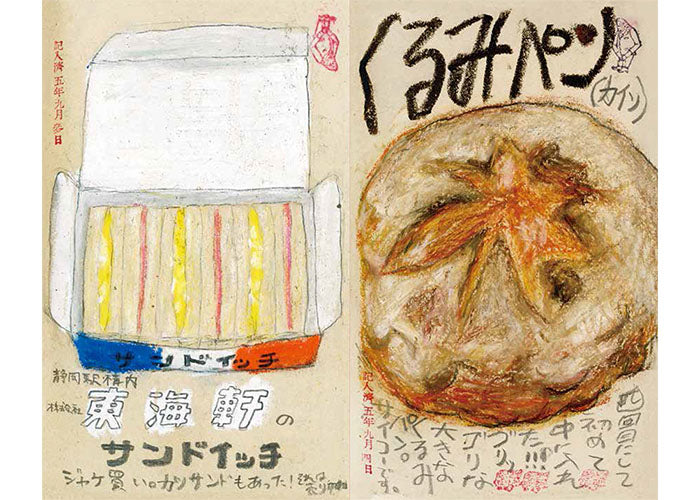 記入済五年九月
サンドイッチ
静岡駅構内
株式会社 東海軒の
サンドイッチ
ジャケ買い。カツサンドもあった!
くるみパン
(カイソ)
四回目にして
初めて
中に入れ
た!!!
ゴリッ
ゴリな
大きな
くるみ
パン。
サイコーです。
記入済五年九月四日